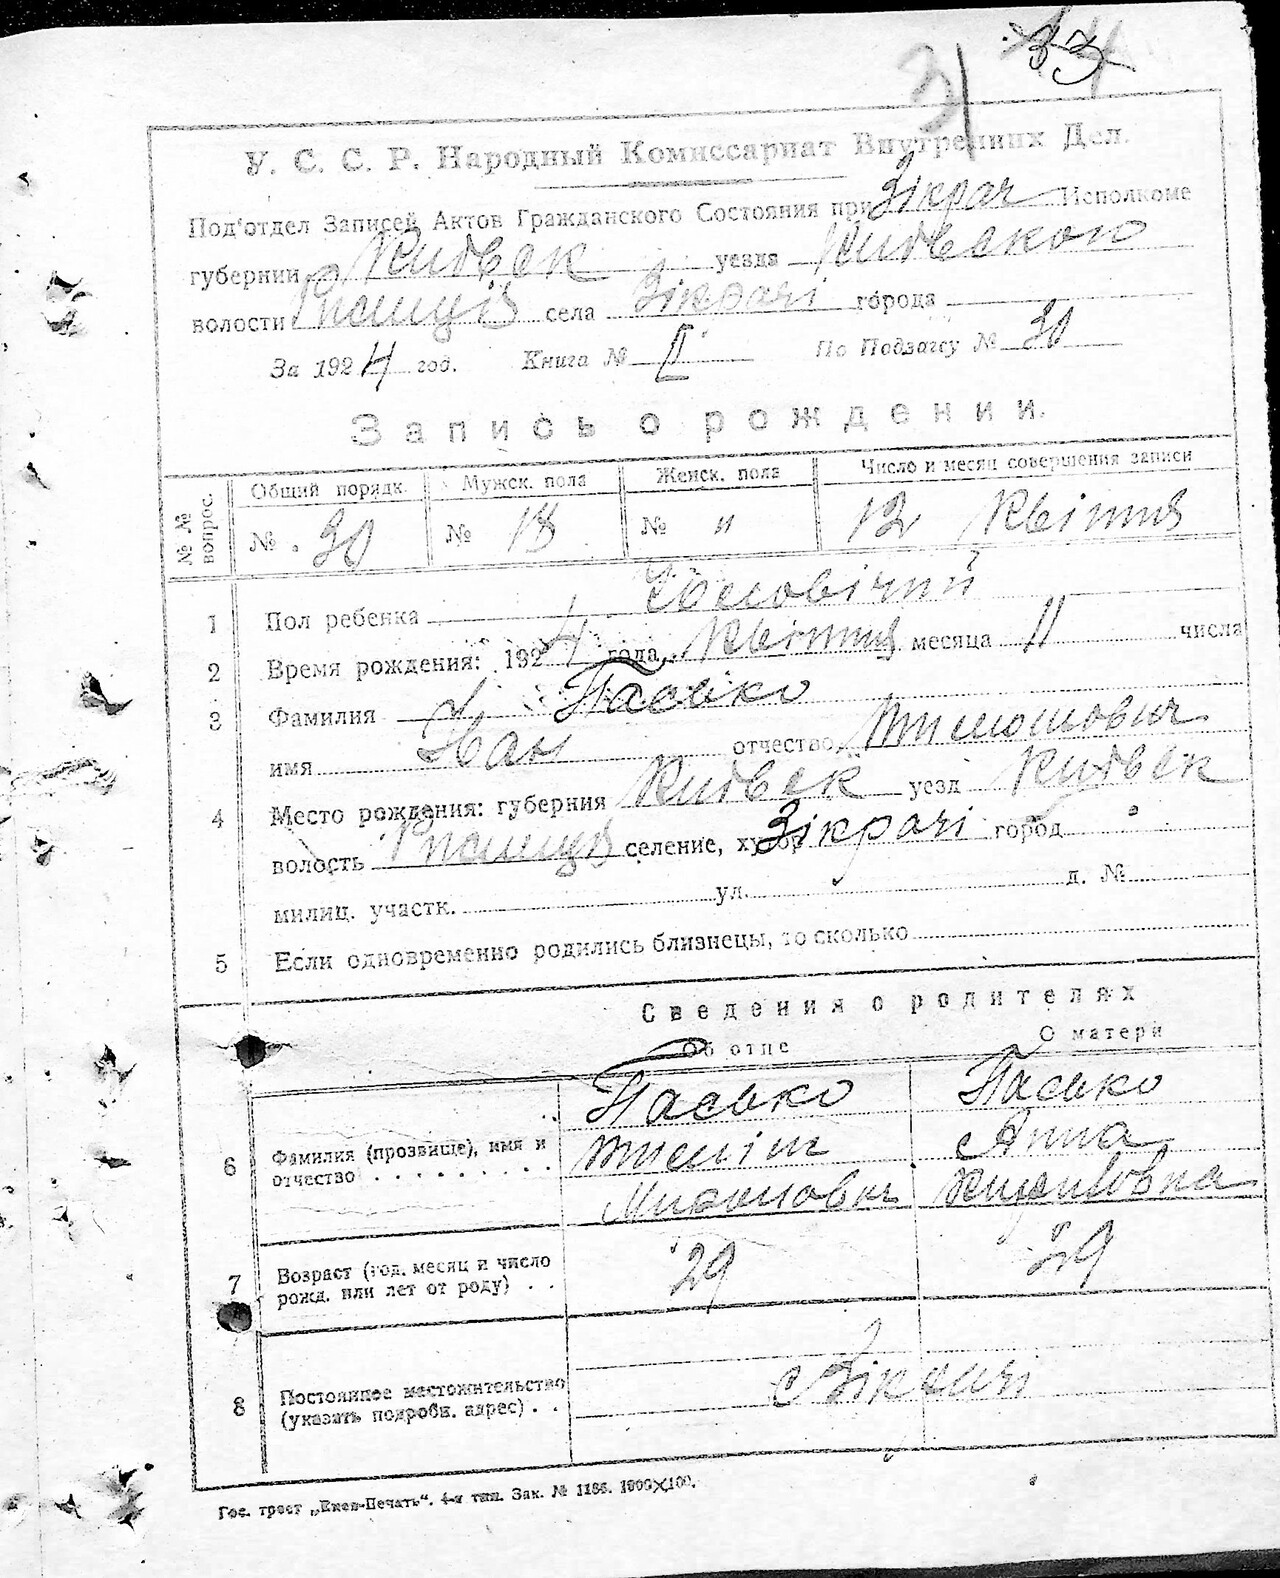 31 33
У. С. С. Р. Народный Комиссариат Внутренних Дел.
Под'отдел Записей Актов Гражданского Состояния при Зікрач Исполкоме
губернии Київск уезда Київской
волости Ржищів села Зікрачі города
За 1924 год. Книга № II По Подзагсу № 30
Запись о рождении.
№№ вопрос. Общий порядк. Мужск. пола Женск. пола Число и месяц совершения записи
№ 30 № 18 № " 12 Квітня
1 Пол ребенка Чоловічий
2 Время рождения: 1924 года, Квітня месяца 11 числа
3 Фамилия Пасько
имя Іван отчество Тимотович
4 Место рождения: губерния Київск уезд Київск
волость Ржищів селение, хутор Зікрачі город
милиц. участк. ул. д. №
5 Если одновременно родились близнецы, то сколько
Сведения о родителях
Об отце О матери
Пасько Пасько
6 Фамилия (прозвище), имя и Анна
отчество
Кириловна
7 Возраст (год, месяц и число 29 29
рожд. или лет от роду)
8 Постоянное местожительство Зікрачі
(указать подробн. адрес)
Гос. трест „Киев-Печать". 4-я тип. Зак. № 1186. 1000×100.